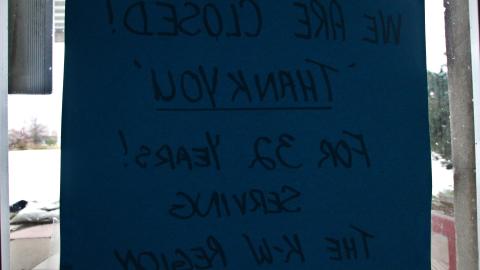 WE ARE CLOSED!
'THANK YOU'
FOR 32 YEARS!
SERVING
THE K-W REGION